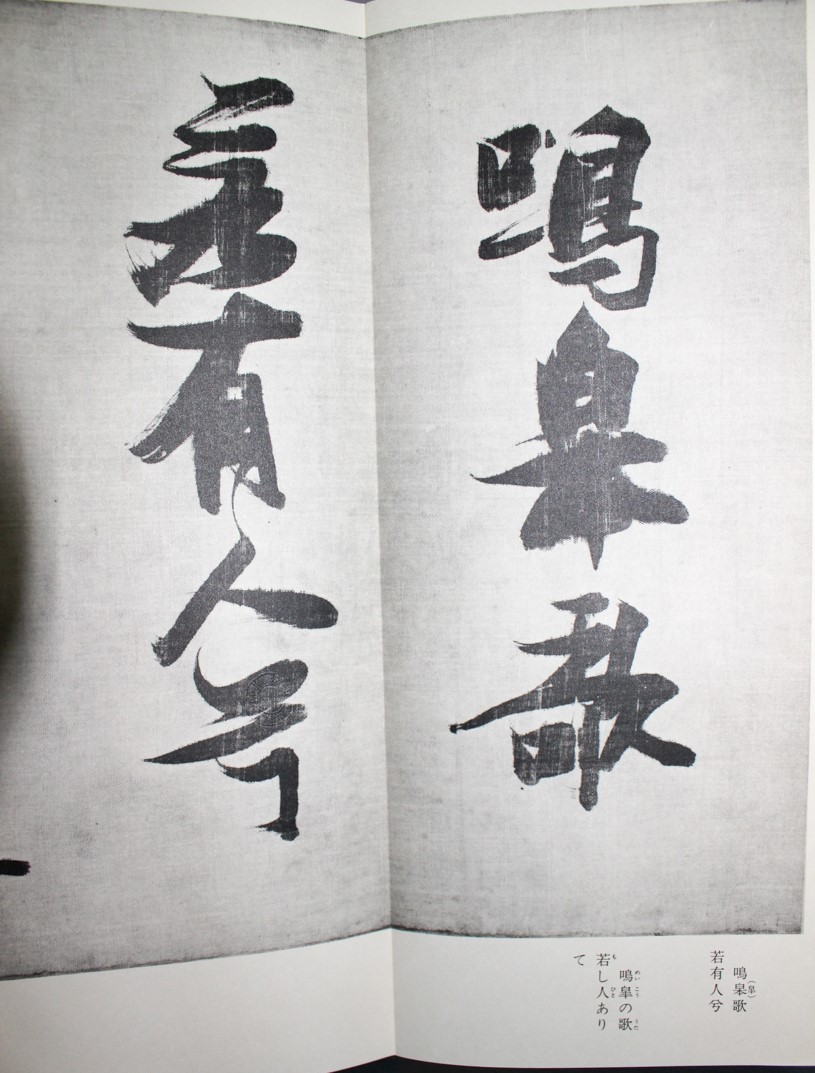 鳴皐歌
若有人兮
鳴皐(皋)歌
若有人兮
鳴皐の歌
若し人あり
て